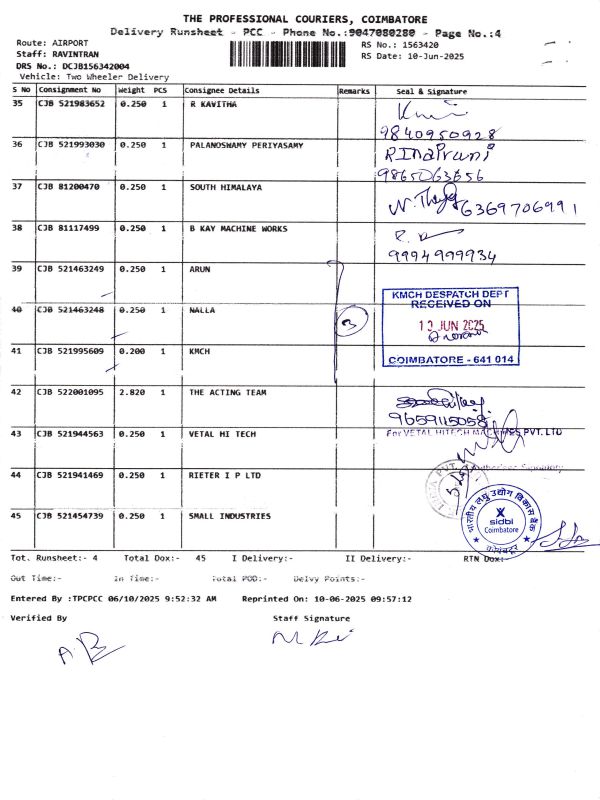 THE PROFESSIONAL COURIERS, COIMBATORE
Delivery Runsheet - PCC - Phone No.:9047080280 - Page No.:4
Route: AIRPORT
RS No.: 1563420
Staff: RAVINTRAN
RS Date: 10-Jun-2025
DRS No.: DCJB156342004
Vehicle: Two Wheeler Delivery
S No Consignment No Weight PCS Consignee Details Remarks Seal & Signature
35 CJB 521983652 0.250 1 R KAVITHA
9840950928
36 CJB 521993030 0.250 1 PALANOSWAMY PERIYASAMY
9865063656
37 CJB 81200470 0.250 1 SOUTH HIMALAYA
6369706991
38 CJB 81117499 0.250 1 B KAY MACHINE WORKS
9994999934
39 CJB 521463249 0.250 1 ARUN
40 CJB 521463248 0.250 1 NALLA 3
KMCH DESPATCH DEPT
RECEIVED ON
10 JUN 2025
COIMBATORE - 641 014
41 CJB 521995609 0.200 1 KMCH
42 CJB 522001095 2.820 1 THE ACTING TEAM
9659115058
43 CJB 521944563 0.250 1 VETAL HI TECH
For VETAL HITECH MACHINES PVT. LTD
Authorised Signatory
44 CJB 521941469 0.250 1 RIETER I P LTD
45 CJB 521454739 0.250 1 SMALL INDUSTRIES
भारतीय लघु उद्योग विकास बैंक
sidbi
Coimbatore
कोयम्बटूर
Tot. Runsheet:- 4 Total Dox:- 45 I Delivery:- II Delivery:- RTN Dox:-
Out Time:- In Time:- Total POD:- Delvy Points:-
Entered By :TPCPCC 06/10/2025 9:52:32 AM Reprinted On: 10-06-2025 09:57:12
Verified By Staff Signature